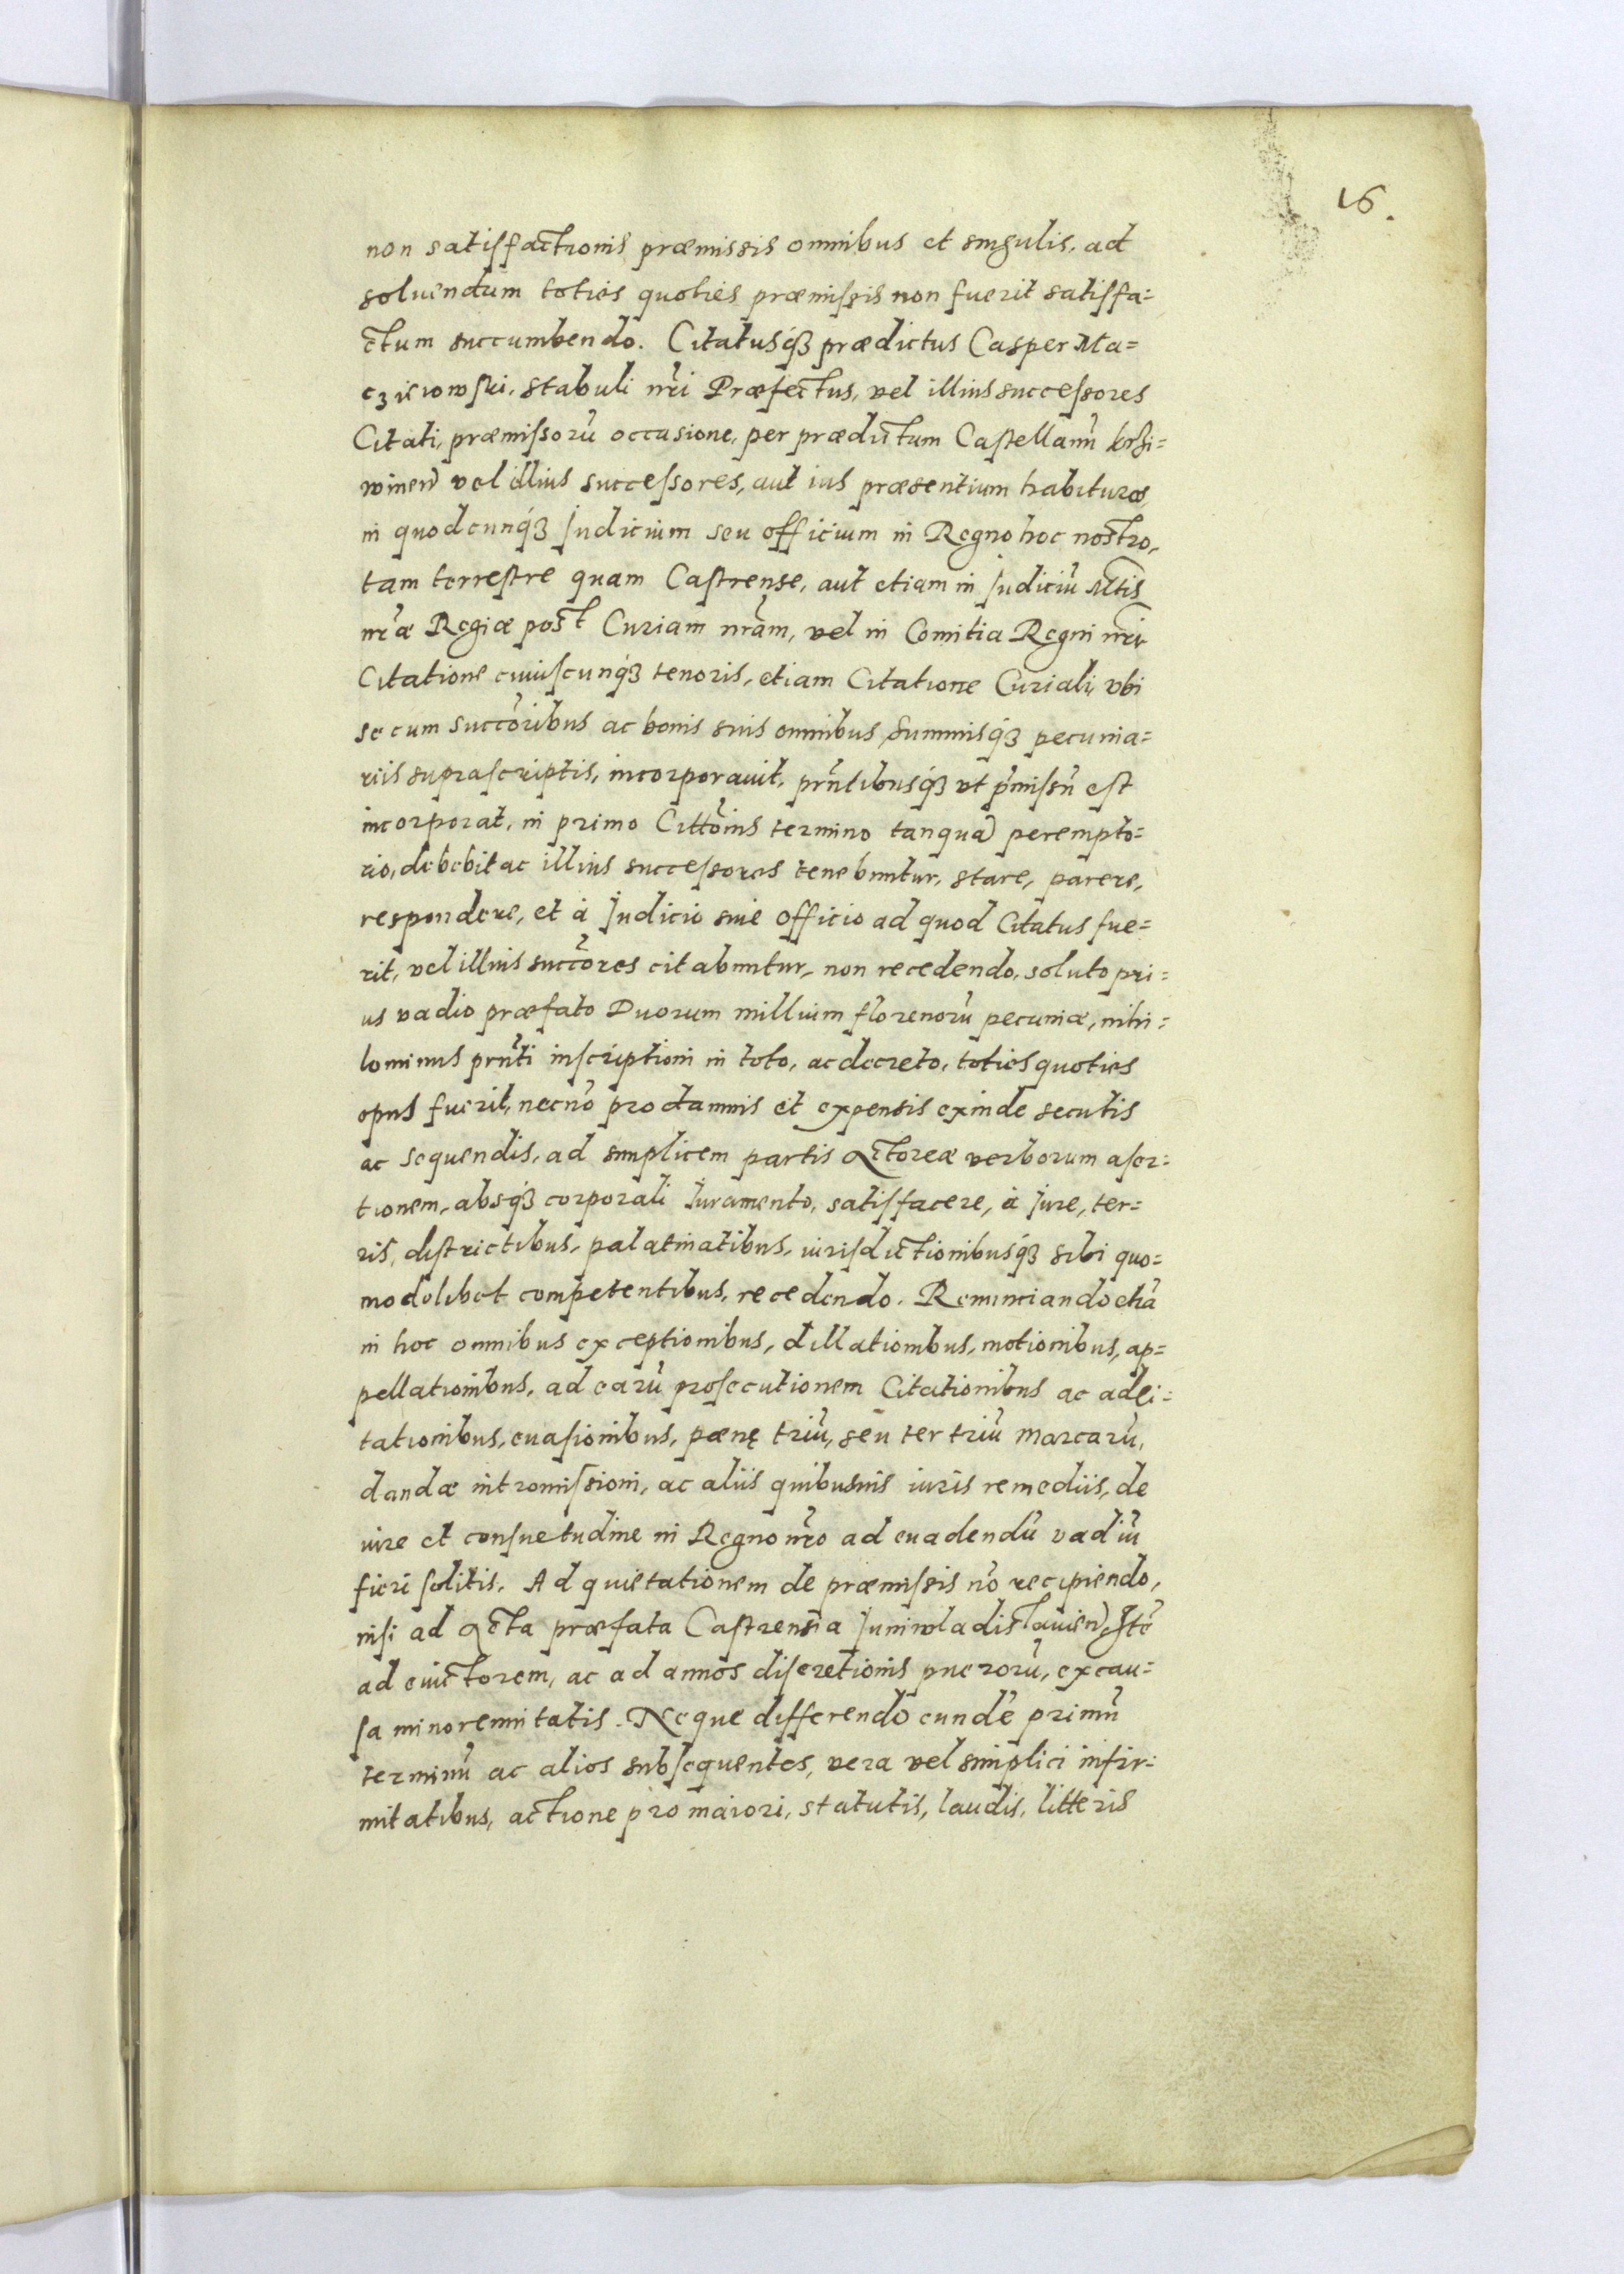 16.
non satisfactionis præmissis omnibus et singulis, ad
soluendum toties quoties præmissis non fuerit satisfa=
ctum succumbendo. Citatusq́ꝫ prædictus Casper Ma=
czieiowski, stabuli nr̃i Præfectus, vel illius successores
Citati, præmissorũ occasione, per prædictum Castellanũ
vel illius successores, aut ius præsentium habituros,
in quodcunq́ꝫ Judicium seu officium in Regno hoc nostro,
tam terrestre quam Castrense, aut etiam in Judiciũ Mtis
nr̃æ Regiæ post Curiam nr̃am, vel in Comitia Regni nr̃i
Citatione cuiuscunq́ꝫ tenoris, etiam Citatione Curiali, vbi
se cum succõribus ac bonis suis omnibus, Summisq́ꝫ pecunia=
riis suprascriptis, incorporauit, prñtibusq́ꝫ vt p̃missũ est
incorporat, in primo Cittõnis termino tanquã perempto=
rio, debebit ac illius successores tenebuntur, stare, parere,
respondere, et à Judicio siue officio ad quod Citatus fue=
rit, vel illius succõres citabuntur, non recedendo, soluto pri=
us vadio præfato Duorum millium florenorũ pecuniæ, nihi=
lominus prñti inscriptioni in toto, ac decreto, toties quoties
opus fuerit, necnõ pro damnis et expensis exinde secutis
ac sequendis, ad simplicem partis Actoreæ verborum aser=
tionem, absq́ꝫ corporali Juramento, satisfacere, à Jure, ter=
ris, districtibus, palatinatibus, iurisdictionibusq́ꝫ sibi quo=
modolibet competentibus, recedendo. Renunciando etiã
in hoc omnibus exceptionibus, dillationibus, motionibus, ap=
pellationibus, ad earũ prosecutionem Citationibus ac adci=
tationibus, euasionibus, pœnę triũ, seu ter triũ marcarũ,
dandæ intromissioni, ac aliis quibusuis iuris remediis, de
iure et consuetudine in Regno nr̃o ad euadendũ vadiũ
fieri solitis. Ad quietationem de præmissis nõ recipiendo,
nisi ad Acta præfata Castrensia Juniwladislauien̄, Itẽ
ad euictorem, ac ad annos discretionis puerorũ, ex cau=
sa minorennitatis. Neque differendo eundẽ primũ
terminũ ac alios subsequentes, vera vel simplici infir=
mitatibus, actione pro maiori, statutis, laudis, litteris